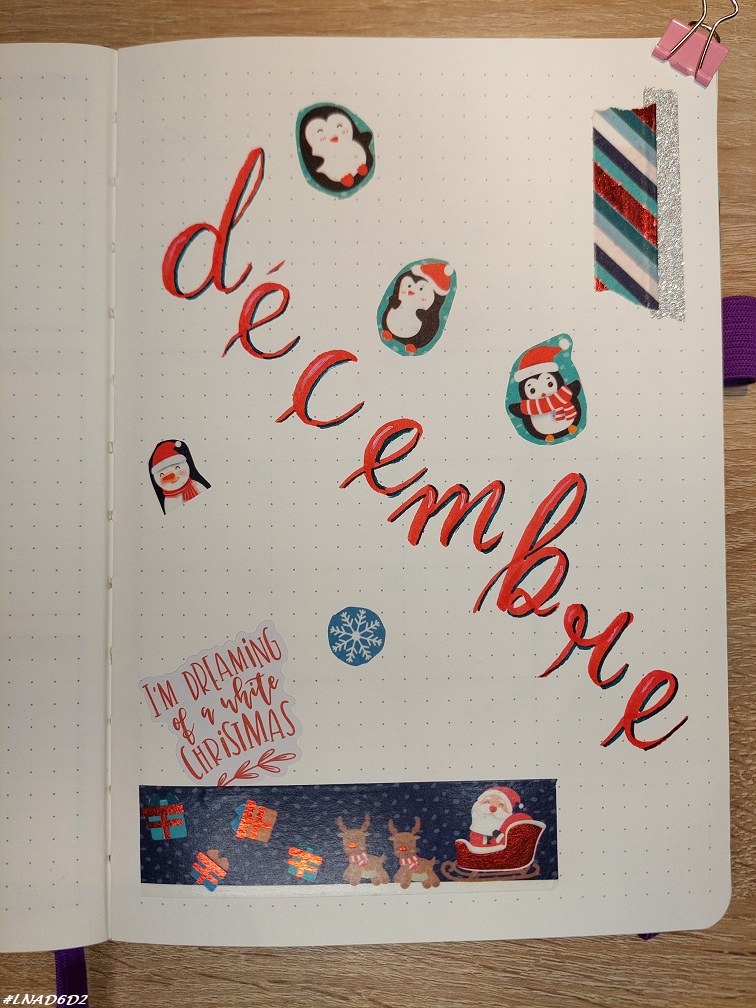 décembre
I'M DREAMING
of a white
CHRISTMAS
#LNAD6D2